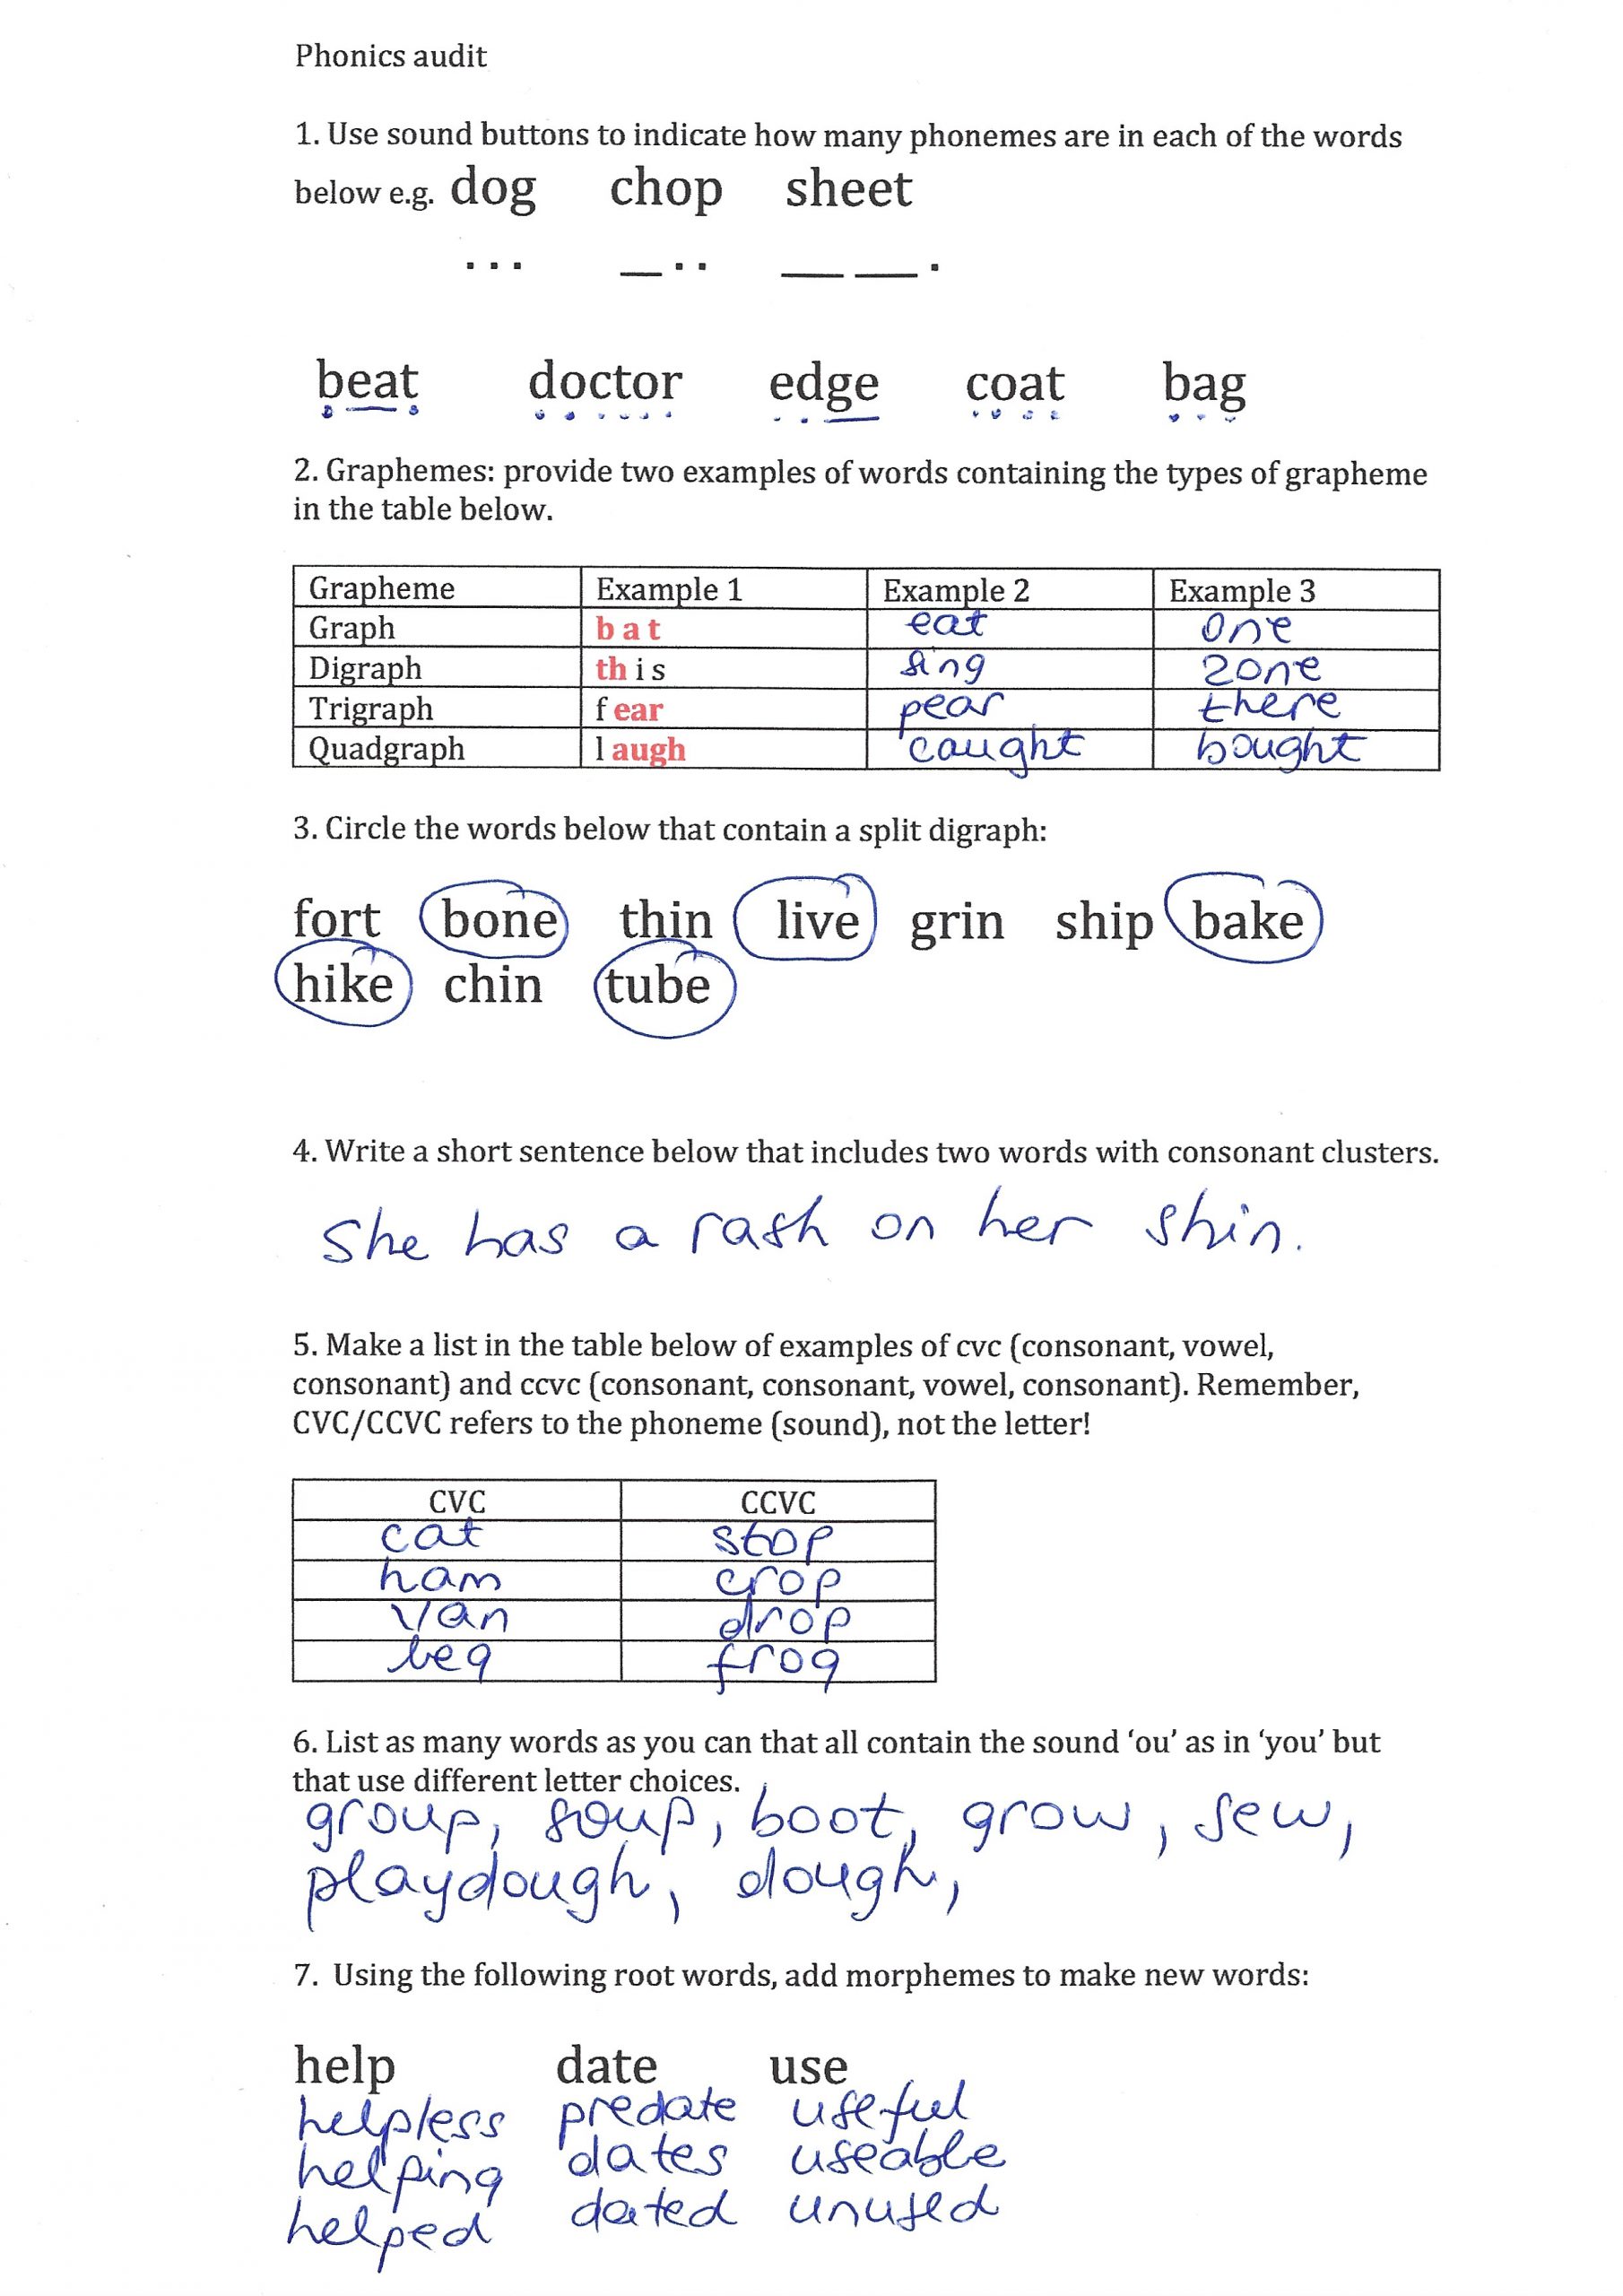 Phonics audit
1. Use sound buttons to indicate how many phonemes are in each of the words
below e.g. dog chop sheet
beat doctor edge coat bag
2. Graphemes: provide two examples of words containing the types of grapheme
in the table below.
Grapheme Example 1 Example 2 Example 3
Graph b a t eat one
Digraph th i s sing zone
Trigraph f ear pear there
Quadgraph l augh caught bought
3. Circle the words below that contain a split digraph:
fort bone thin live grin ship bake
hike chin tube
4. Write a short sentence below that includes two words with consonant clusters.
She has a rash on her shin.
5. Make a list in the table below of examples of cvc (consonant, vowel,
consonant) and ccvc (consonant, consonant, vowel, consonant). Remember,
CVC/CCVC refers to the phoneme (sound), not the letter!
CVC CCVC
cat stop
ham crop
van drop
beg frog
6. List as many words as you can that all contain the sound ‘ou’ as in ‘you’ but
that use different letter choices.
group, soup, boot, grow, sew,
playdough, dough,
7. Using the following root words, add morphemes to make new words:
help date use
helpless predate useful
helping dates useable
helped dated unused